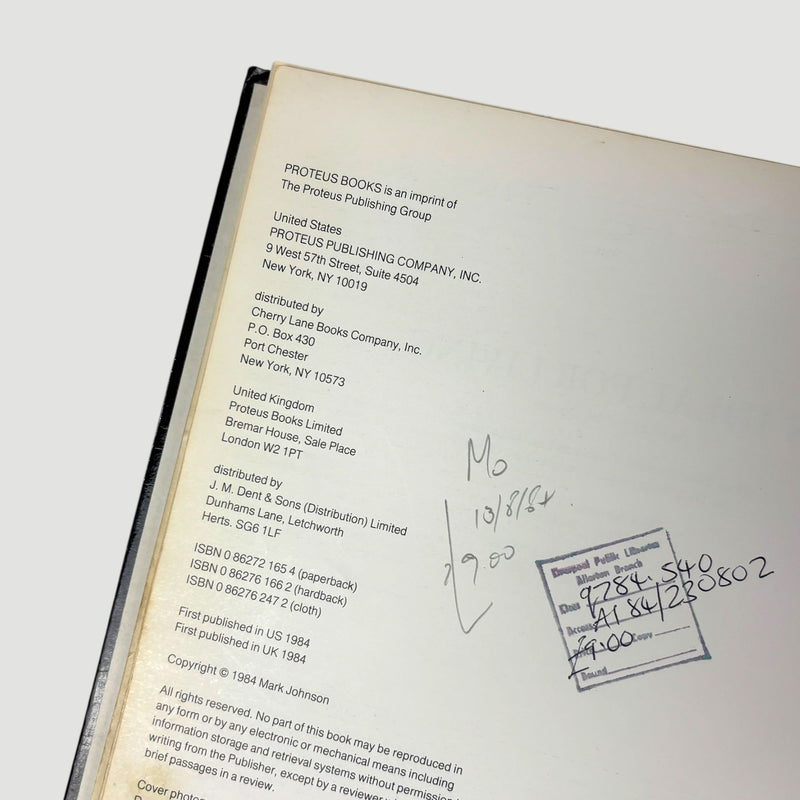 PROTEUS BOOKS is an imprint of
The Proteus Publishing Group
United States
PROTEUS PUBLISHING COMPANY, INC.
9 West 57th Street, Suite 4504
New York, NY 10019
distributed by
Cherry Lane Books Company, Inc.
P.O. Box 430
Port Chester
New York, NY 10573
United Kingdom
Proteus Books Limited
Bremar House, Sale Place
London W2 1PT
distributed by
J. M. Dent & Sons (Distribution) Limited
Dunhams Lane, Letchworth
Herts. SG6 1LF
ISBN 0 86272 165 4 (paperback)
ISBN 0 86276 166 2 (hardback)
ISBN 0 86276 247 2 (cloth)
First published in US 1984
First published in UK 1984
Copyright © 1984 Mark Johnson
All rights reserved. No part of this book may be reproduced in
any form or by any electronic or mechanical means including
information storage and retrieval systems without permission
writing from the Publisher, except by a reviewer
brief passages in a review.
Cover
Mo
10/8/84
9.00
Liverpool Public Libraries
Allerton Branch
Class 9284.540
Access A1 84/230802
£9.00 Copy
Bound